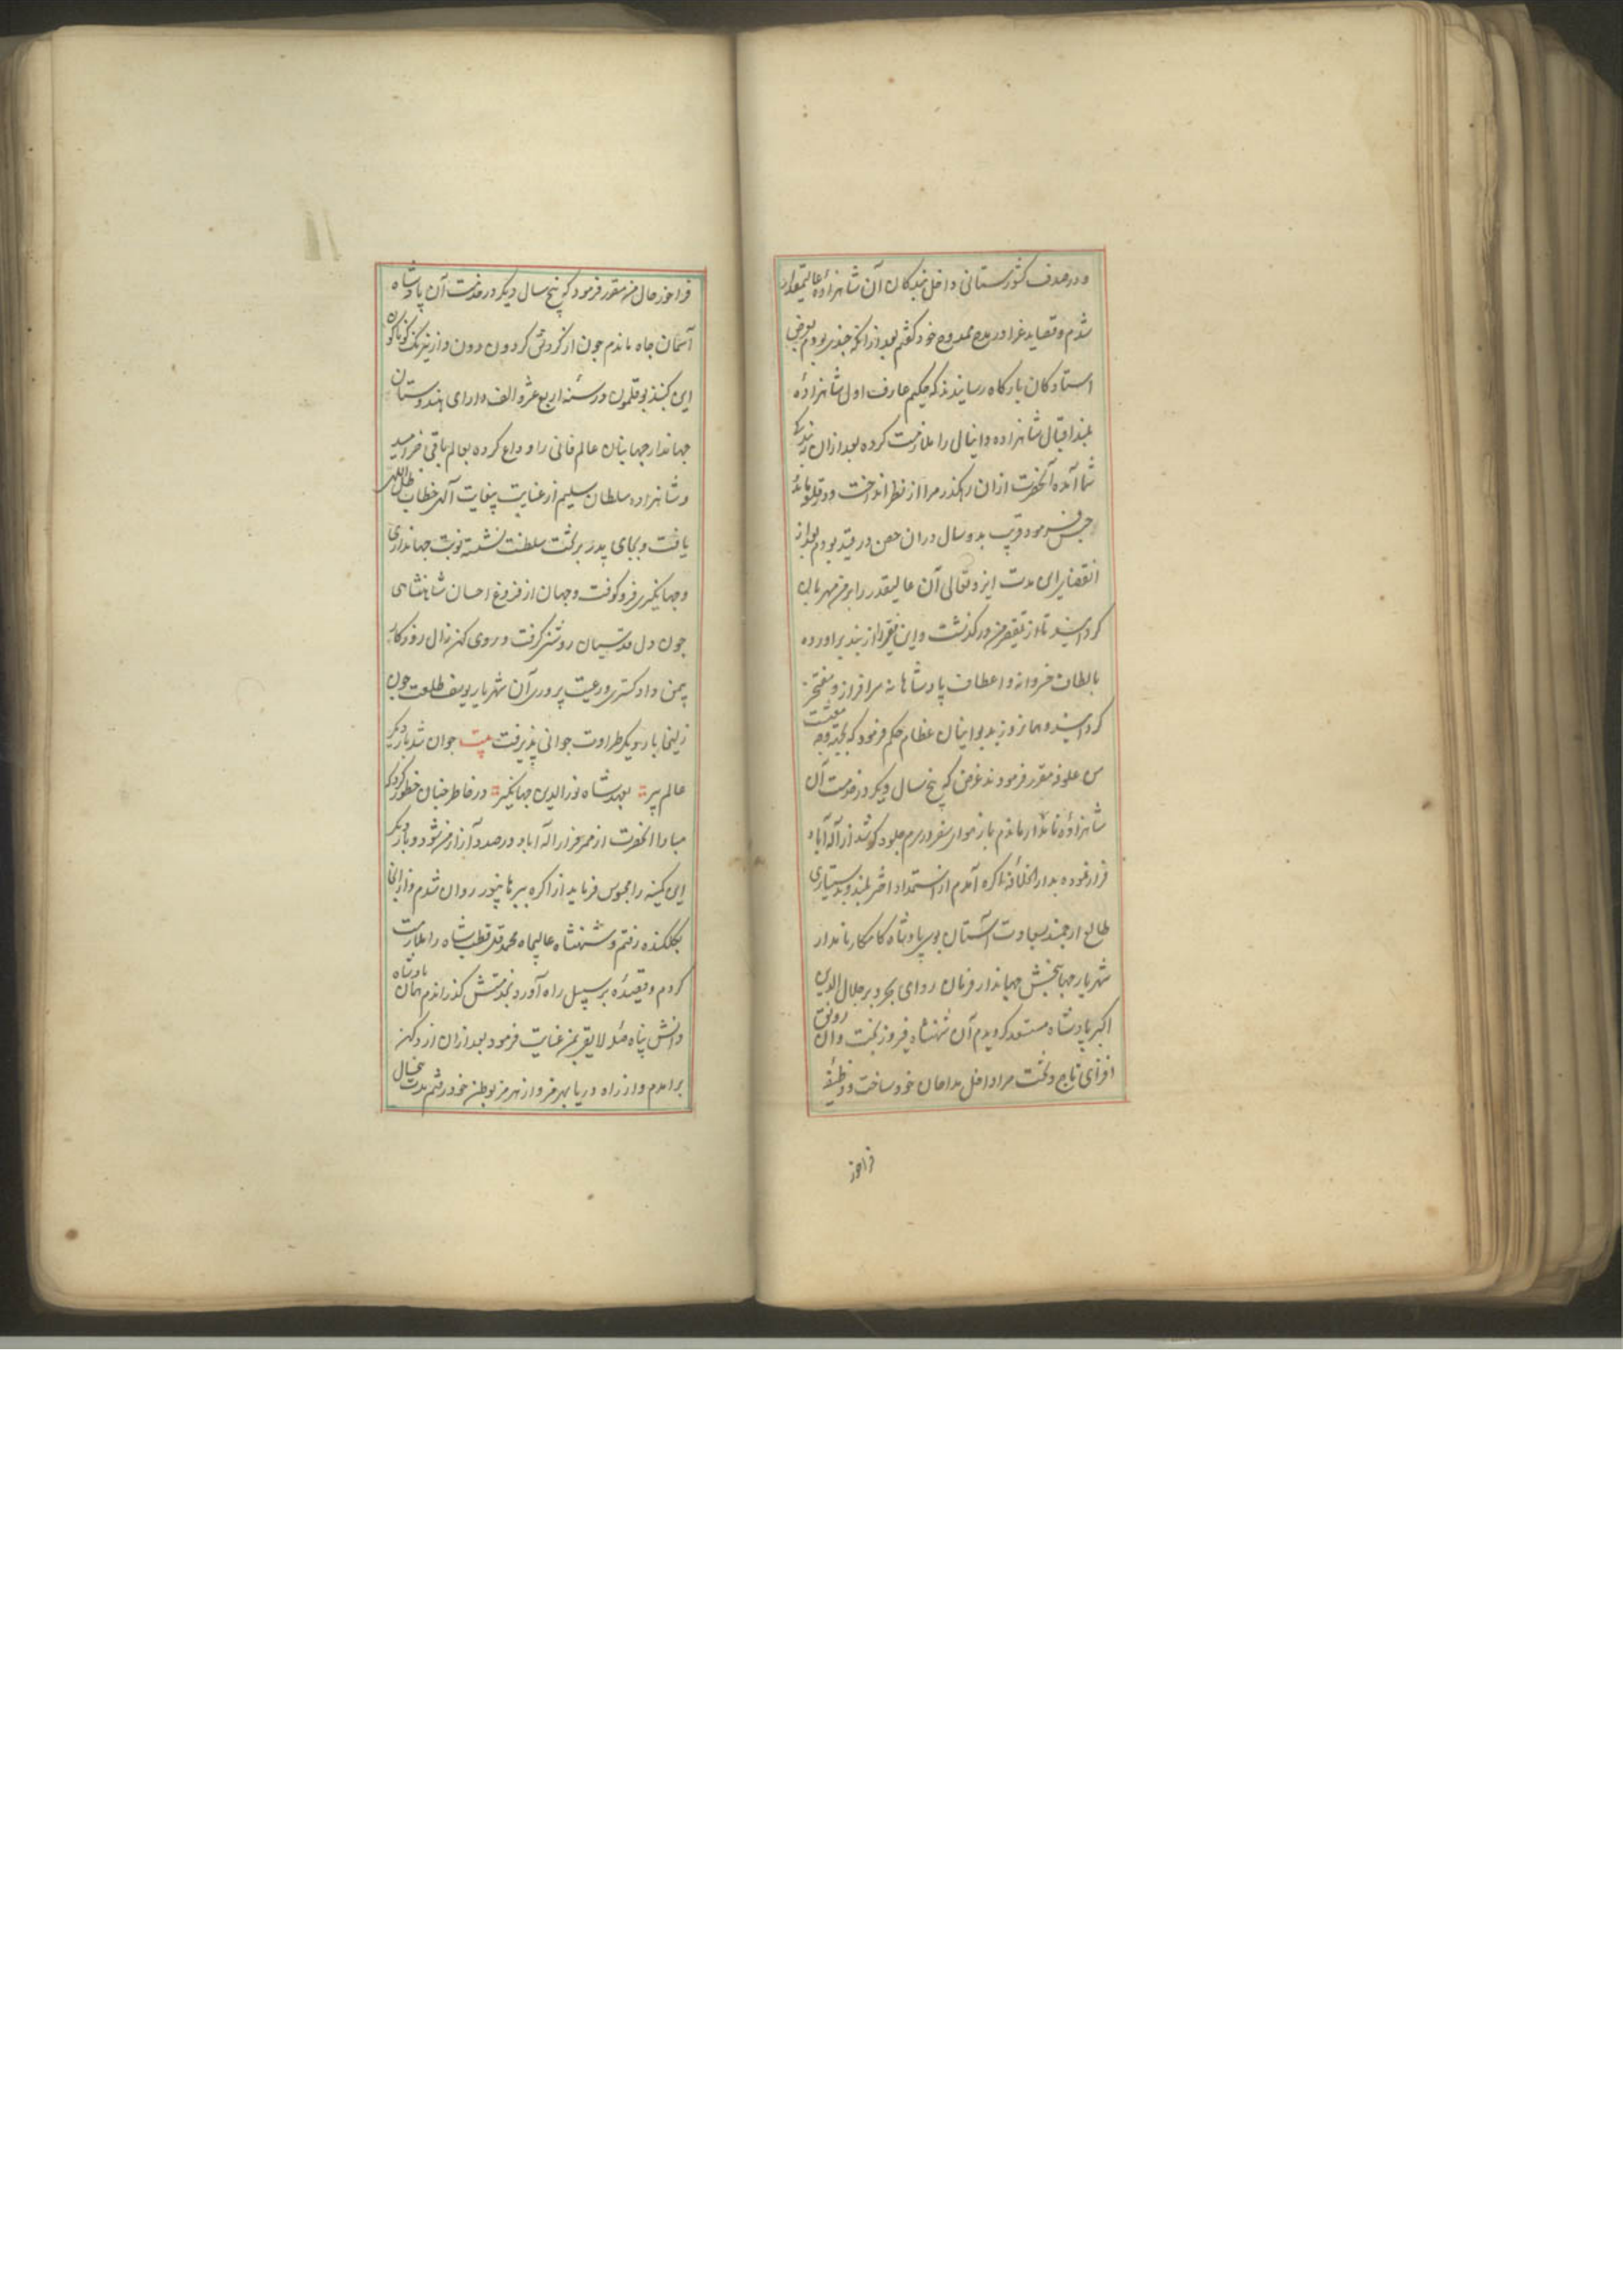 و در صدف کشورستانی داخل بندکان آن شاهزادهٔ عالیمقدار
شدم و قصاید غرا در مدح ممدوح خود کفتم بعد از انکه چندی بودم بعرض
استادکان بارکاه رسانیدند که حکیم عارف اول شاهزادهٔ
بلند اقبال شاهزاده دانیال را ملازمت کرده بعد ازان به بندکی
شما آمده آنحضرت ازان رهکذر مرا از نظر انداخت و در قلعه
حبس فرمود قریب بدو سال دران حصن در قید بودم بعد از
انقضای این مدت ایزد تعالی آن عالیقدر را بر من مهربان
کردانید تا از تقصیر من درکذشت و این فقیر را از بند براورده
بالطاف خسروانه و اعطاف پادشاهانه سرافراز و مفتخر
کردانید و همانروز بدیوانیان عظام حکم فرمود که بجهة وجه معیشت
من علوفه مقرر فرمودند غرض که پنج سال دیکر در خدمت آن
شاهزادهٔ نامدار ماندم باز هوای سفر در سرم جلوه کر شد از آله آباد
فرار نموده بدار الخلافهٔ اکره آمدم از استمداد اختر بلند و بدستیاری
طالع ارجمند بسعادت آستان بوس پادشاه کامکار نامدار
شهریار جهانبخش جهاندار فرمان روای بحر و بر جلال الدین
اکبر پادشاه مستعد کردیدم آن شهنشاه فیروز بخت و ان رونق
افزای تاج و تخت مرا داخل مداحان خود ساخت و وظیفهٔ
فراخور
فراخور حال من مقرر فرمود که پنج سال دیکر در خدمت آن پادشاه
آسمان جاه ماندم چون از کردش کردون دون و از نیرنک کوناکون
این کنبذ بوقلمون در سنهٔ اربع عشر و الف دارای هندوستان
جهاندار جهانیان عالم فانی را وداع کرده بعالم باقی خرامید
و شاهزاده سلطان سلیم از عنایت بیغایت آلهی خطاب ظل اللهی
یافت و بجای پدر بر تخت سلطنت نشسته نوبت جهانداری
و جهانکیری فرو کوفت و جهان از فروغ احسان شاهنشاهی
چون دل قدسیان روشنی کرفت و روی کهنه زال روزکار
بیمن دادکستری و رعیت پروری آن شهریار یوسف طلعت چون
زلیخا بار دیکر طراوت جوانی پذیرفت بیت جوان شد بار دیکر
عالم پیر بعهد شاه نور الدین جهانکیر در خاطر چنان خطور کرد که
مبادا آنحضرت از ممر فرار اله اباد در صدد آزار من شود و بار دیکر
این کمینه را محبوس فرماید از اکره ببرهانپور روان شدم و از انجا
بکلکنده رفتم و شهنشاه عالیجاه محمد قلی قطب شاه را ملازمت
کردم و قصیدهٔ بر سبیل راه آورد بخدمتش کذراندم همان پادشاه
دانش پناه صلهٔ لایق بمن عنایت فرمود بعد ازان از دکن
برامدم و از راه دریا بهرمز و از هرمز بوطن خود رفتم مدت